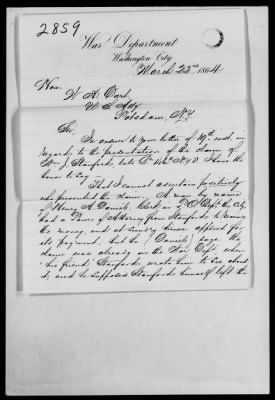 2859
War Department
Washington City,
March 23rd 1864
Hon:
W. A. Dart
U. S. Atty
Potsdam, N.Y.
Sir,
In answer to your letter of 19th inst. in
regard to the presentation of the claim of
Wm J. Stanford, late Lt N.Y. I have the
honor to say
That I cannot ascertain positively
who presented the claim. A man by name
of Henry A. Daniels, Clerk in P.O. Dept this City
had a Power of Attorney from Stanford to receive
the money, and at sundry times applied for
its payment, but he (Daniels) says the
claim was already in the War Dept, when
his friend Stanford wrote him to see about
it, and he supposes Stanford himself left the